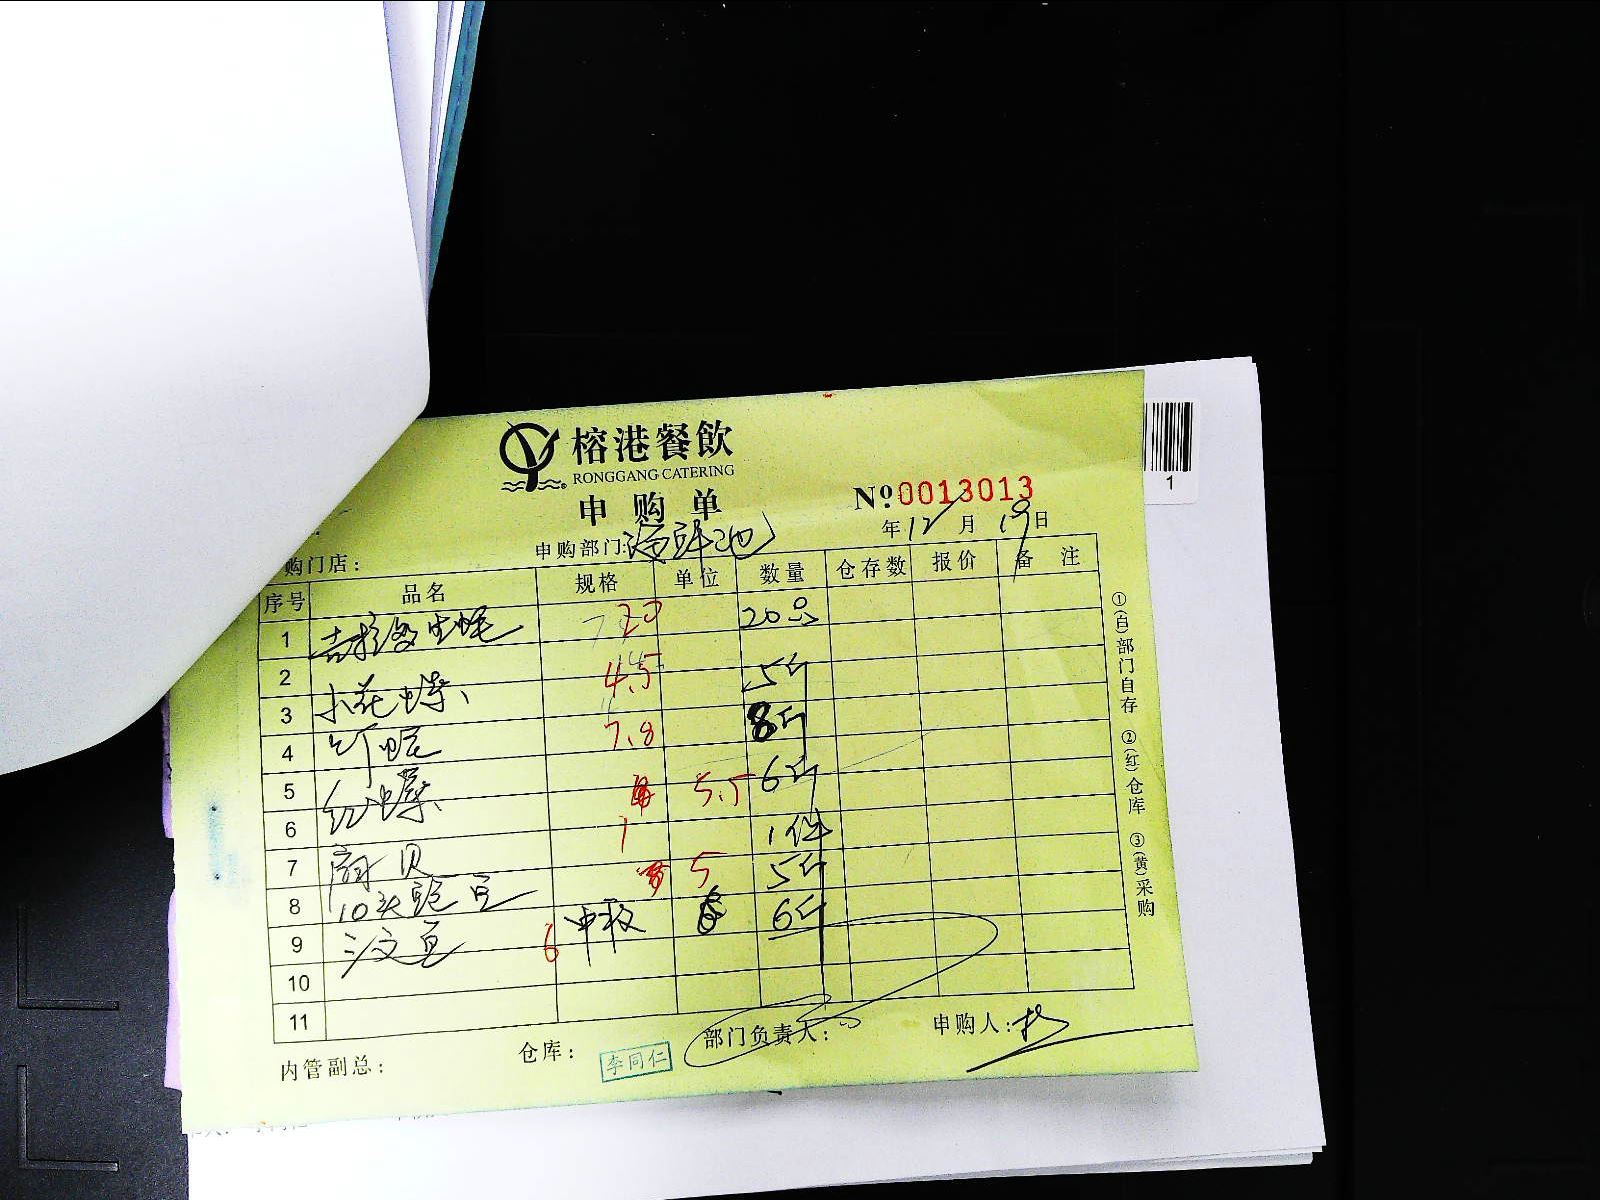 榕港餐飲
RONGGANG CATERING
申购单
№:0013013
购门店: 申购部门:海鲜池 年12月19日
序号 品名 规格 单位 数量 仓存数 报价 备注
1 吉拉多生蚝 20 20只
2 4.5 5斤
3 小花螺 7.8 8斤
4
5 红螺 5.5 6斤
6 1 1件
7 扇贝 5 5斤
8 10头
9 6 6斤
10
11
内管副总: 仓库: 李同仁 部门负责人: 申购人:
①(白)部门自存 ②(红)仓库 ③(黄)采购
1